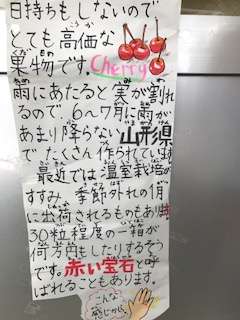 日持ちもしないので
とても高価な
果物です。Cherry
雨にあたると実が割れ
るので 6〜7月に雨が
あまり降らない山形県
で たくさん作られてい
最近では温室栽培が
すすみ、季節外れの
に出荷されるものもあり
30粒程度の一箱が
何万円もしたりするそう
です。赤い宝石と呼
ばれることもあります。
こんな
感じかしら